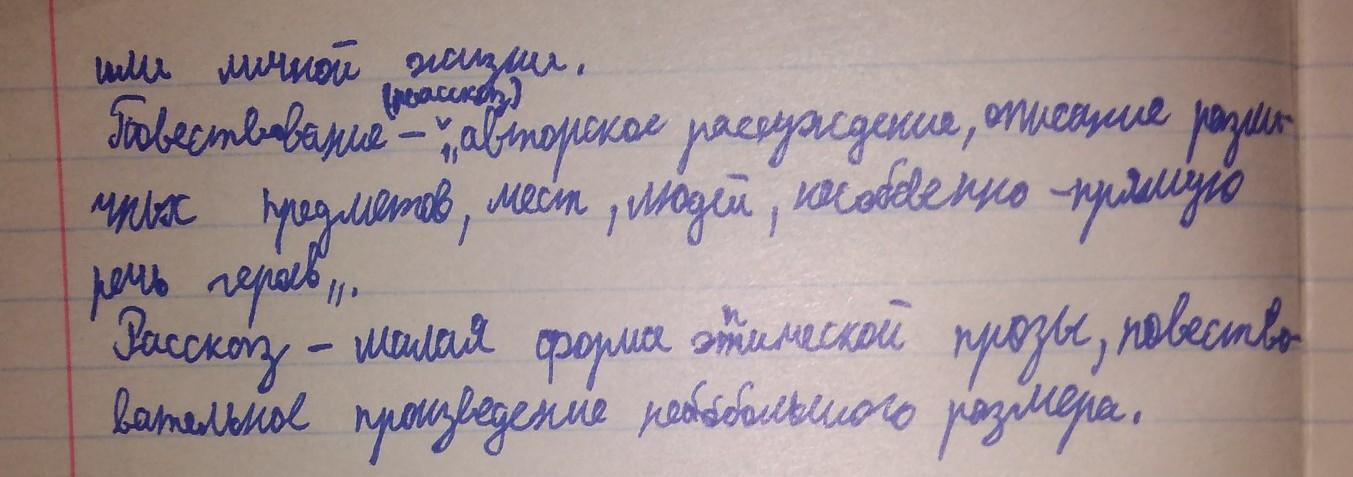 или личной жизни.
(рассказ)
Повествование – „авторское рассуждение, описание разли-
чных предметов, мест, людей, несобвенно-прямую
речь героев„.
Рассказ – малая форма эпической прозы, повество-
вательное произведение небобольшого размера.